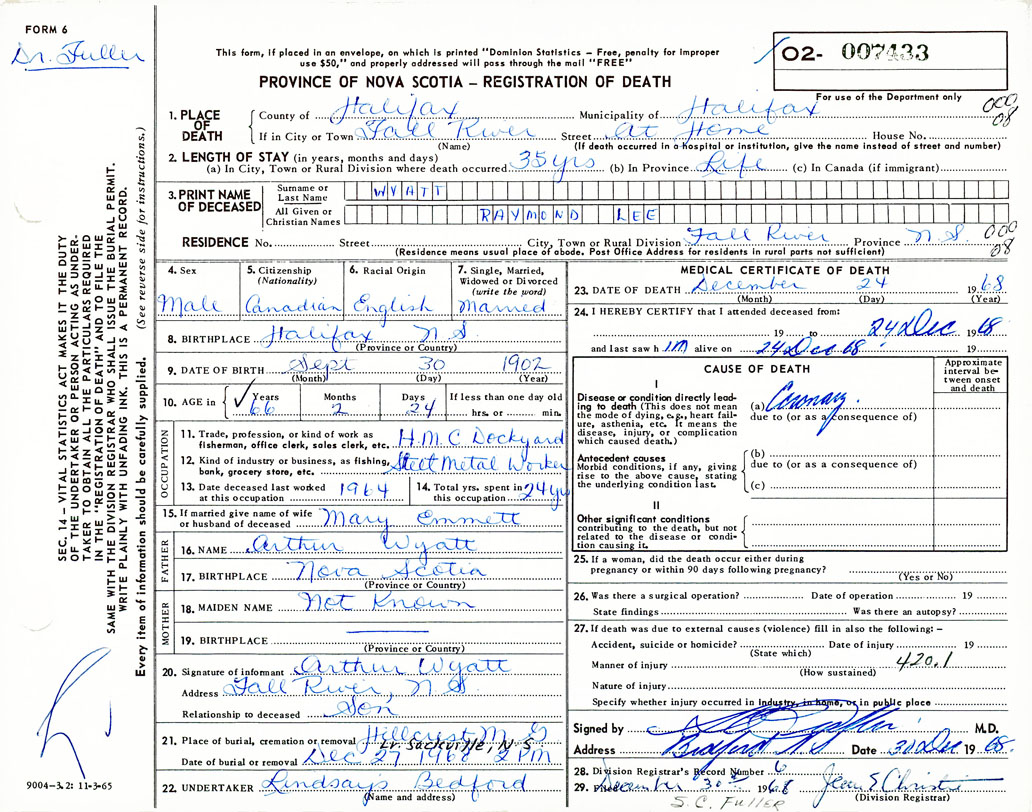 FORM 6
Dr. Fuller
This form, if placed in an envelope, on which is printed "Dominion Statistics – Free, penalty for improper
use $50," and properly addressed will pass through the mail "FREE"
PROVINCE OF NOVA SCOTIA – REGISTRATION OF DEATH
O2- 007433
For use of the Department only
000
08
1. PLACE OF DEATH
County of Halifax Municipality of Halifax
If in City or Town Fall River Street At Home House No.
(Name) (If death occurred in a hospital or institution, give the name instead of street and number)
2. LENGTH OF STAY (in years, months and days)
(a) In City, Town or Rural Division where death occurred 35 yrs (b) In Province Life (c) In Canada (if immigrant)
3. PRINT NAME OF DECEASED
Surname or Last Name WYATT
All Given or Christian Names RAYMOND LEE
RESIDENCE No. Street City, Town or Rural Division Fall River Province N.S.
000
08
(Residence means usual place of abode. Post Office Address for residents in rural parts not sufficient)
4. Sex
Male
5. Citizenship
(Nationality)
Canadian
6. Racial Origin
English
7. Single, Married,
Widowed or Divorced
(write the word)
Married
8. BIRTHPLACE Halifax N.S.
(Province or Country)
9. DATE OF BIRTH Sept 30 1902
(Month) (Day) (Year)
10. AGE in Years Months Days If less than one day old
✓ 66 2 24 hrs. or min.
OCCUPATION
11. Trade, profession, or kind of work as
fisherman, office clerk, sales clerk, etc. H.M.C Dockyard
12. Kind of industry or business, as fishing,
bank, grocery store, etc. Steel Metal Worker
13. Date deceased last worked
at this occupation 1964
14. Total yrs. spent in
this occupation 24 yrs
15. If married give name of wife
or husband of deceased Mary Emmett
FATHER
16. NAME Arthur Wyatt
17. BIRTHPLACE Nova Scotia
(Province or Country)
MOTHER
18. MAIDEN NAME Not Known
19. BIRTHPLACE
(Province or Country)
20. Signature of informant Arthur Wyatt
Address Fall River, N.S.
Relationship to deceased Son
21. Place of burial, cremation or removal Hillcrest
Lr. Sackville, N.S.
Date of burial or removal Dec 27 1968 2 PM
22. UNDERTAKER Lindsay's Bedford
(Name and address)
MEDICAL CERTIFICATE OF DEATH
23. DATE OF DEATH December 24 1968
(Month) (Day) (Year)
24. I HEREBY CERTIFY that I attended deceased from:
19 to 24 Dec 1968
and last saw him alive on 24 Dec 68 19
CAUSE OF DEATH
Approximate
interval be-
tween onset
and death
I
Disease or condition directly lead-
ing to death (This does not mean
the mode of dying, e.g., heart fail-
ure, asthenia, etc. It means the
disease, injury, or complication
which caused death.)
(a) Coronary
due to (or as a consequence of)
Antecedent causes
Morbid conditions, if any, giving
rise to the above cause, stating
the underlying condition last.
(b)
due to (or as a consequence of)
(c)
II
Other significant conditions
contributing to the death, but not
related to the disease or condi-
tion causing it.
25. If a woman, did the death occur either during
pregnancy or within 90 days following pregnancy?
(Yes or No)
26. Was there a surgical operation? Date of operation 19
State findings Was there an autopsy?
27. If death was due to external causes (violence) fill in also the following: –
Accident, suicide or homicide? Date of injury 19
(State which)
Manner of injury 420.1
(How sustained)
Nature of injury
Specify whether injury occurred in Industry, in home, or in public place
Signed by S C Fuller M.D.
Address Bedford NS Date 30 Dec 1968
28. Division Registrar's Record Number 6
29. Filed December 30 1968
(Division Registrar)
S. C. FULLER
SEC. 14 – VITAL STATISTICS ACT MAKES IT THE DUTY
OF THE UNDERTAKER OR PERSON ACTING AS UNDER-
TAKER TO OBTAIN ALL THE PARTICULARS REQUIRED
IN THE "REGISTRATION OF DEATH" AND TO FILE THE
SAME WITH THE DIVISION REGISTRAR WHO SHALL ISSUE THE BURIAL PERMIT.
WRITE PLAINLY WITH UNFADING INK. THIS IS A PERMANENT RECORD.
Every item of information should be carefully supplied. (See reverse side for instructions.)
9004-3.2: 11-3-65